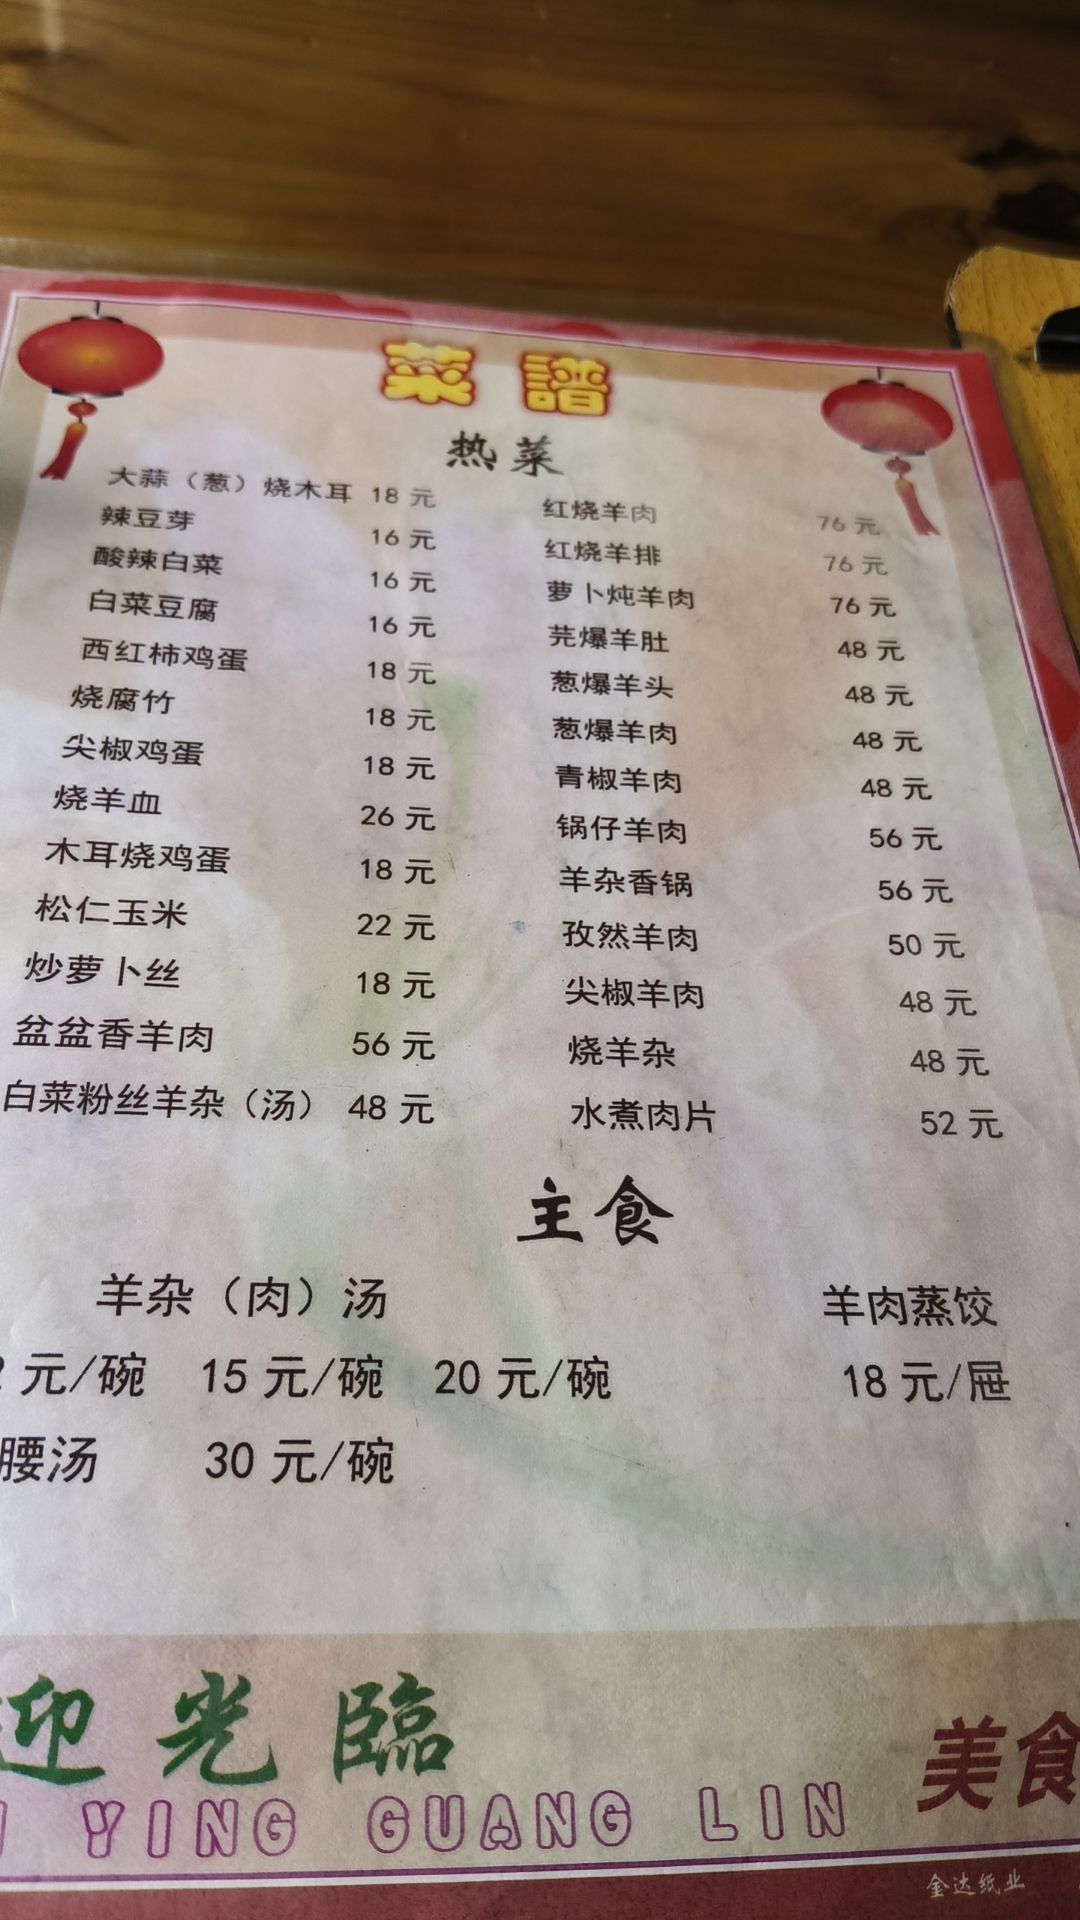 菜譜
热菜
大蒜（葱）烧木耳 18 元
辣豆芽 16 元
酸辣白菜 16 元
白菜豆腐 16 元
西红柿鸡蛋 18 元
烧腐竹 18 元
尖椒鸡蛋 18 元
烧羊血 26 元
木耳烧鸡蛋 18 元
松仁玉米 22 元
炒萝卜丝 18 元
盆盆香羊肉 56 元
白菜粉丝羊杂（汤） 48 元
红烧羊肉 76 元
红烧羊排 76 元
萝卜炖羊肉 76 元
芫爆羊肚 48 元
葱爆羊头 48 元
葱爆羊肉 48 元
青椒羊肉 48 元
锅仔羊肉 56 元
羊杂香锅 56 元
孜然羊肉 50 元
尖椒羊肉 48 元
烧羊杂 48 元
水煮肉片 52 元
主食
羊杂（肉）汤 羊肉蒸饺
元/碗 15 元/碗 20 元/碗 18 元/屉
腰汤 30 元/碗
迎光臨
YING GUANG LIN
美食
金达纸业